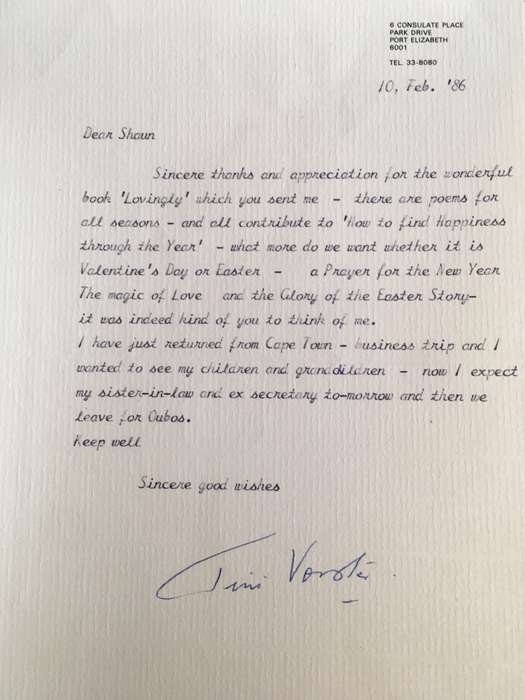 6 CONSULATE PLACE
PARK DRIVE
PORT ELIZABETH
6001
TEL. 33-8080
10, Feb. '86
Dear Shaun
Sincere thanks and appreciation for the wonderful
book 'Lovingly' which you sent me - there are poems for
all seasons - and all contribute to 'How to find Happiness
through the Year' - what more do we want whether it is
Valentine's Day or Easter - a Prayer for the New Year
The magic of Love and the Glory of the Easter Story-
it was indeed kind of you to think of me.
I have just returned from Cape Town - business trip and I
wanted to see my children and grandchildren - now I expect
my sister-in-law and ex secretary to-morrow and then we
leave for Oubos.
Keep well
Sincere good wishes
Tini Vorster